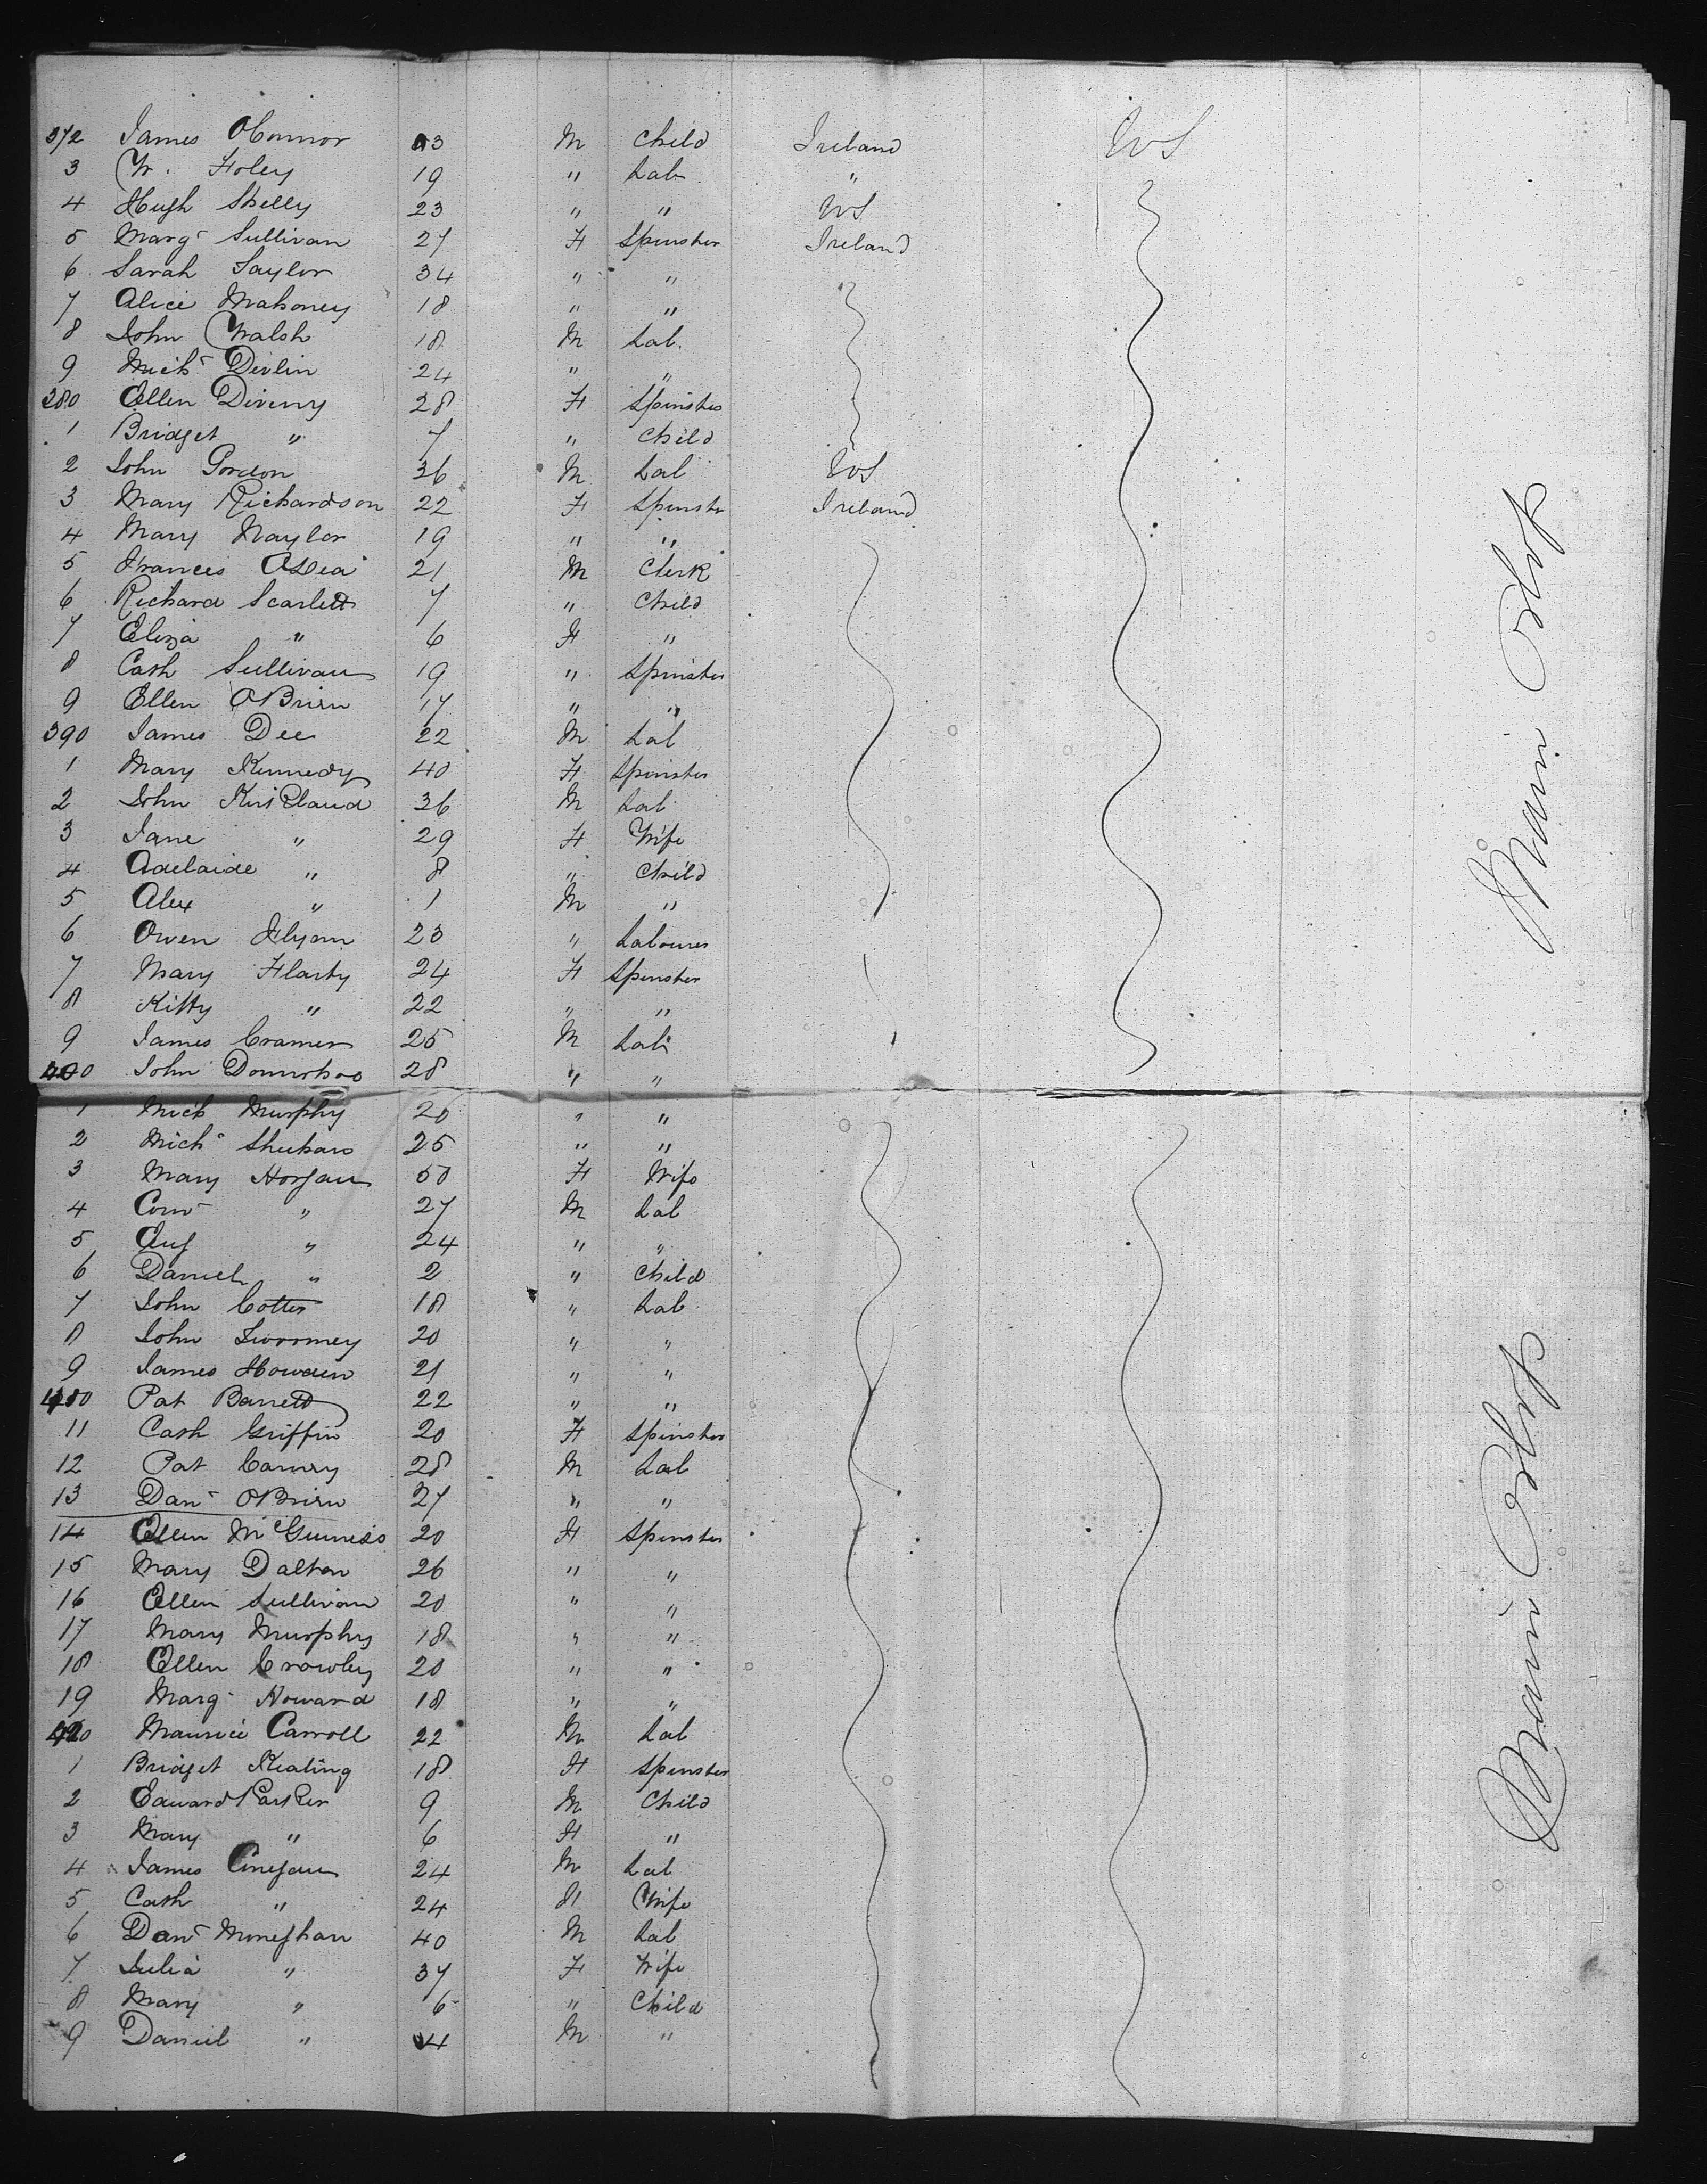 372 James OConnor 3 M Child Ireland US
3 W. Foley 19 " Lab "
4 Hugh Skelly 23 " " US
5 Marg Sullivan 27 F Spinster Ireland
6 Sarah Saylor 34 " "
7 Alice Mahoney 18 " "
8 John Walsh 18 M Lab.
9 Mich Divlin 24 " "
380 Ellen Diveny 28 F Spinster
1 Bridget " 7 " Child
2 John Gordon 36 M Lab US
3 Mary Richardson 22 F Spinster Ireland
4 Mary Naylor 19 " "
5 Frances OShea 21 M Clerk
6 Richard Scarlett 7 " Child
7 Eliza " 6 F "
8 Cath Sullivan 19 " Spinster
9 Ellen OBrien 17 " "
390 James Dee 22 M Lab
1 Mary Kennedy 40 F Spinster
2 John Kirkland 36 M Lab
3 Jane " 29 F Wife
4 Adelaide " 8 " Child
5 Alex " 1 M "
6 Owen Flynn 23 " Labourer
7 Mary Flarty 24 F Spinster
8 Kitty " 22 " "
9 James Cramer 25 M Lab
400 John Donnohoo 28 " "
1 Mich Murphy 26 " "
2 Mich Sheehan 25 " "
3 Mary Horgan 50 F Wife
4 Corn " 27 M Lab
5 Eug " 24 " "
6 Daniel " 2 " Child
7 John Cotter 18 " Lab
8 John Twoomey 20 " "
9 James Howard 21 " "
410 Pat Barrett 22 " "
11 Cath Griffin 20 F Spinster
12 Pat Carney 28 M Lab
13 Dan OBrien 27 " "
14 Ellen McGuiness 20 F Spinster
15 Mary Dalton 26 " "
16 Ellen Sullivan 20 " "
17 Mary Murphy 18 " "
18 Ellen Crowley 20 " "
19 Marg Howard 18 " "
420 Maurice Carroll 22 M Lab
1 Bridget Keating 18 F Spinster
2 Edward Parker 9 M Child
3 Mary " 6 F "
4 James Finegan 24 M Lab
5 Cath " 24 F Wife
6 Dan Moneghan 40 M Lab
7 Julia " 37 F Wife
8 Mary " 6 " Child
9 Daniel " 4 M "
Main
Main